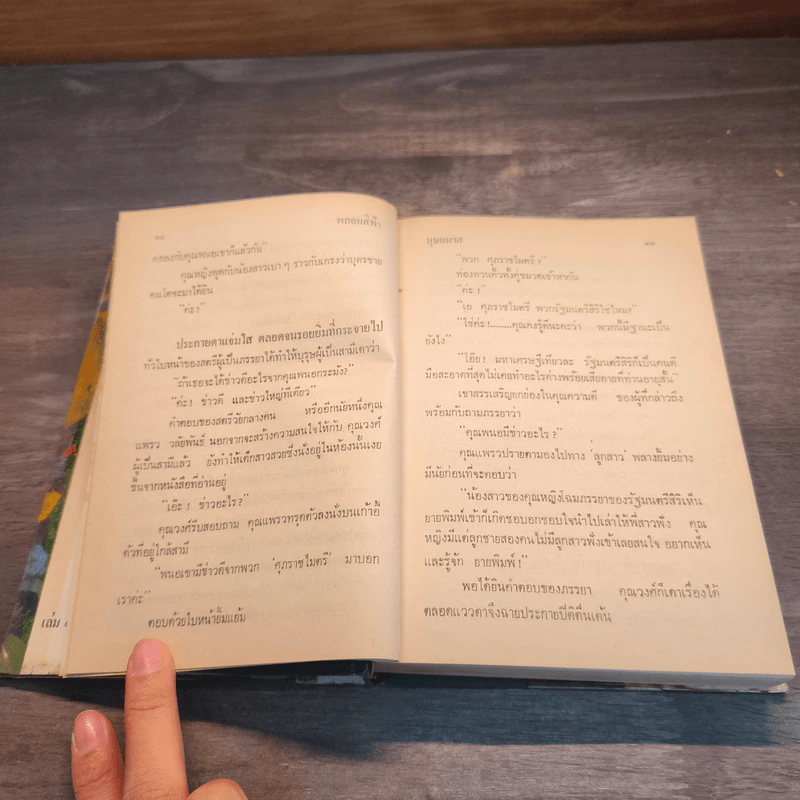 พลอยสีฟ้า
ตกลงกับคุณพนอเขาก็แล้วกัน"
คุณหญิงพูดกับน้องสาวเบา ๆ ราวกับเกรงว่าบุตรชาย
คนโตจะมาได้ยิน
"ค่ะ!"
ประกายตาแจ่มใส ตลอดจนรอยยิ้มที่กระจายไป
ทั่วใบหน้าของสตรีผู้เป็นภรรยาได้ทำให้บุรุษผู้เป็นสามีเดาว่า
"ถ้าเธอจะได้ข่าวดีอะไรจากคุณพนอกระมัง?"
"ค่ะ! ข่าวดี และข่าวใหญ่ทีเดียว"
คำตอบของสตรีวัยกลางคน หรืออีกนัยหนึ่งคุณ
แพรว วลัยพันธ์ นอกจากจะสร้างความสนใจให้กับ คุณวงศ์
ผู้เป็นสามีแล้ว ยังทำให้เด็กสาวสวยซึ่งนั่งอยู่ในห้องนั้นเงย
ขึ้นจากหนังสือที่อ่านอยู่
"เอ๊ะ! ข่าวอะไร?"
คุณวงศ์รีบสอบถาม คุณแพรวทรุดตัวลงนั่งบนเก้าอี้
ตัวที่อยู่ใกล้สามี
"พนอเขามีข่าวดีจากพวก 'ศุภราชไมตรี' มาบอก
เราค่ะ"
ตอบด้วยใบหน้ายิ้มแย้ม
เล่ม
บุษยมาส
"พวก ศุภราชไมตรี!"
ท่องทวนคิ้วทั้งคู่ขมวดเข้าหากัน
"ค่ะ!"
"เอ ศุภราชไมตรี พวกรัฐมนตรีสิริใช่ไหม?"
"ใช่ค่ะ!........คุณคงรู้ดีนะคะว่า พวกนี้มีฐานะเป็น
ยังไง"
"โอ๊ย! มหาเศรษฐีเทียวละ รัฐมนตรีสิริก็เป็นคนดี
มือสะอาดที่สุดไม่เคยทำอะไรด่างพร้อยเสียดายที่ท่านอายุสั้น"
เขาสรรเสริญยกย่องในคุณความดี ของผู้ที่กล่าวถึง
พร้อมกับถามภรรยาว่า
"คุณพนอมีข่าวอะไร?"
คุณแพรวปรายตามองไปทาง 'ลูกสาว' พลางยิ้มอย่าง
มีนัยก่อนที่จะตอบว่า
"น้องสาวของคุณหญิงโฉมภรรยาของรัฐมนตรีสิริเห็น
ยายพิมพ์เข้าก็เกิดชอบอกชอบใจนำไปเล่าให้พี่สาวฟัง คุณ
หญิงมีแต่ลูกชายสองคนไม่มีลูกสาวฟังเข้าเลยสนใจ อยากเห็น
และรู้จัก ยายพิมพ์!"
พอได้ยินคำตอบของภรรยา คุณวงศ์ก็เดาเรื่องได้
ตลอดแววตาจึงฉายประกายปีติตื่นเต้น